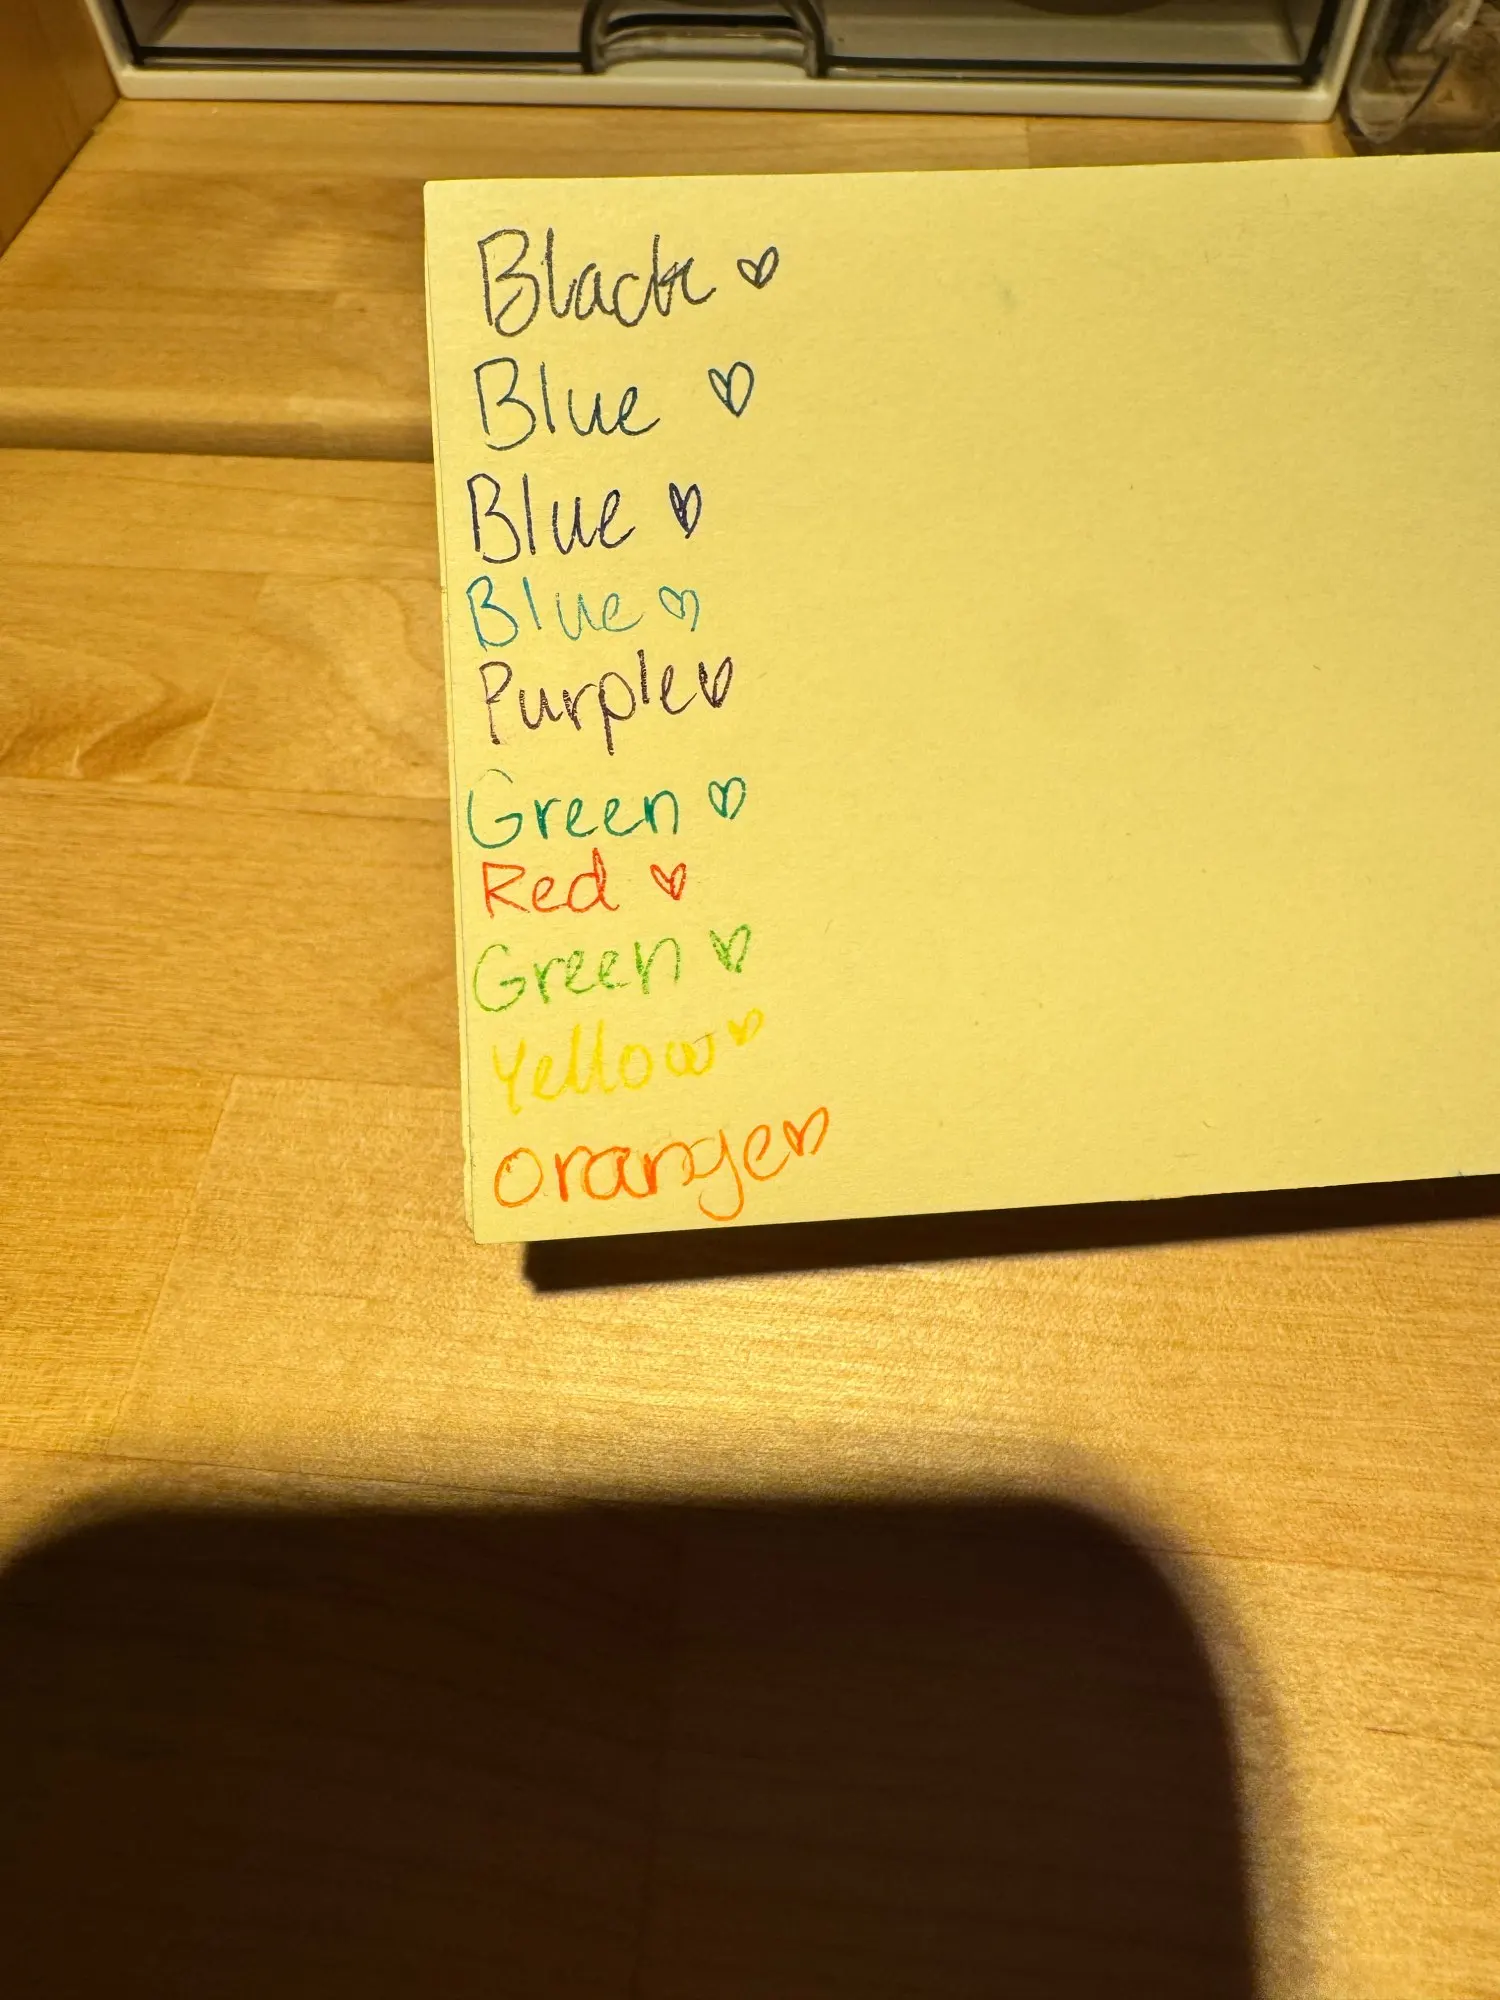 Black ♡
Blue ♡
Blue ♡
Blue ♡
Purple ♡
Green ♡
Red ♡
Green ♡
Yellow ♡
orange ♡